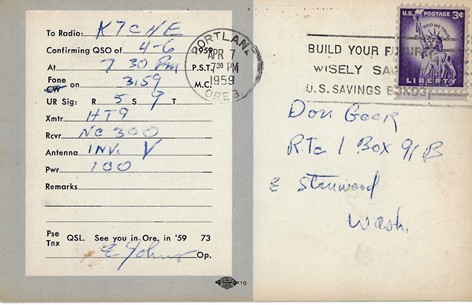 To Radio: K7CNE
Confirming QSO of 4-6 1959
At 7 30 PM P.S.T.
Fone
CW on 3.59 M.C.
Ur Sig: R 5 S 9 T
Xmtr HT9
Rcvr NC 300
Antenna INV. V
Pwr 100
Remarks
Pse QSL. See you in Ore, in '59 73
Tnx Op.
10
PORTLAND
APR 7
7 30 PM
1959
OREG.
BUILD YOUR FUTURE
WISELY
U.S. SAVINGS BONDS
U.S. POSTAGE 3¢
IN GOD WE TRUST
LIBERTY
Don Geer
Rte 1 Box 91 B
E Stanwood
Wash.